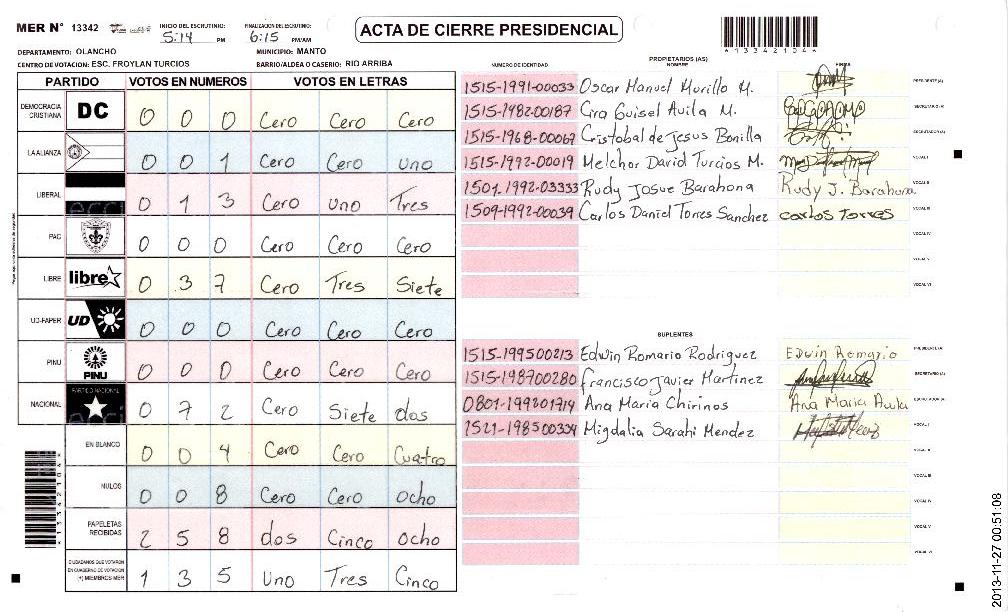 MER N° 13342
INICIO DEL ESCRUTINIO: 5:14 PM
FINALIZACION DEL ESCRUTINIO: 6:15 PM/AM
ACTA DE CIERRE PRESIDENCIAL
DEPARTAMENTO: OLANCHO MUNICIPIO: MANTO
CENTRO DE VOTACION: ESC. FROYLAN TURCIOS BARRIO/ALDEA O CASERIO: RIO ARRIBA
PARTIDO VOTOS EN NUMEROS VOTOS EN LETRAS
DEMOCRACIA CRISTIANA DC 0 0 0 Cero Cero Cero
LA ALIANZA 0 0 1 Cero Cero uno
LIBERAL 0 1 3 Cero uno Tres
PAC 0 0 0 Cero Cero Cero
LIBRE libre 0 3 7 Cero Tres Siete
UD-FAPER UD 0 0 0 Cero Cero Cero
PINU PINU 0 0 0 Cero Cero Cero
NACIONAL PARTIDO NACIONAL 0 7 2 Cero Siete dos
EN BLANCO 0 0 4 Cero Cero Cuatro
NULOS 0 0 8 Cero Cero ocho
PAPELETAS RECIBIDAS 2 5 8 dos Cinco ocho
CIUDADANOS QUE VOTARON EN CUADERNO DE VOTACION (+) MIEMBROS MER 1 3 5 Uno Tres Cinco
PROPRIETARIOS (AS)
NUMERO DE IDENTIDAD NOMBRE FIRMA
1515-1991-00033 Oscar Manuel Murillo M. PRESIDENTE(A)
1515-1982-00187 Gra Guisel Avila M. SECRETARIO(A)
1515-1968-00067 Cristobal de Jesus Bonilla ESCRUTADOR(A)
1515-1992-00019 Melchor David Turcios M. VOCAL I
1501-1992-03333 Rudy Josue Barahona Rudy J. Barahona VOCAL II
1509-1992-00039 Carlos Daniel Torres Sanchez carlos Torres VOCAL III
VOCAL IV
VOCAL V
VOCAL VI
SUPLENTES
1515-199500213 Edwin Romario Rodriguez Edwin Romario PRESIDENTE(A)
1515-198700280 Francisco Javier Martinez SECRETARIO(A)
0801-199201714 Ana Maria Chirinos Ana Maria Avila ESCRUTADOR(A)
1521-198500334 Migdalia Sarahi Mendez VOCAL I
VOCAL II
VOCAL III
VOCAL IV
VOCAL V
VOCAL VI
1 3 3 4 2 1 0 4
2013-11-27 00:51:08